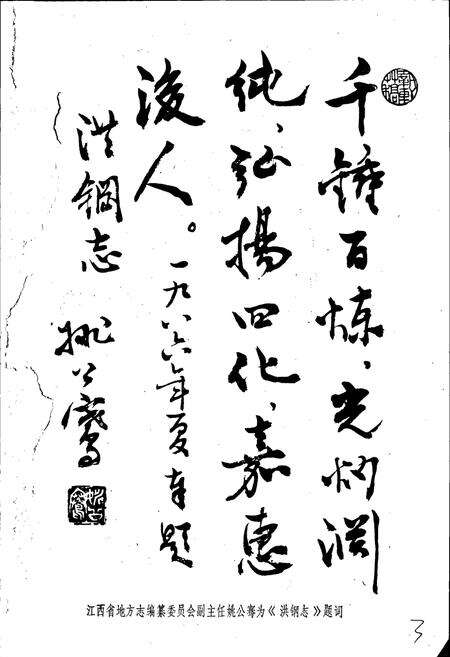 千錘百煉、光炳渊
纯、弘揚四化、嘉惠
後人。一九八六年夏奉題
洪鋼志 姚公騫
江西省地方志编纂委员会副主任姚公骞为《洪钢志》题词
3